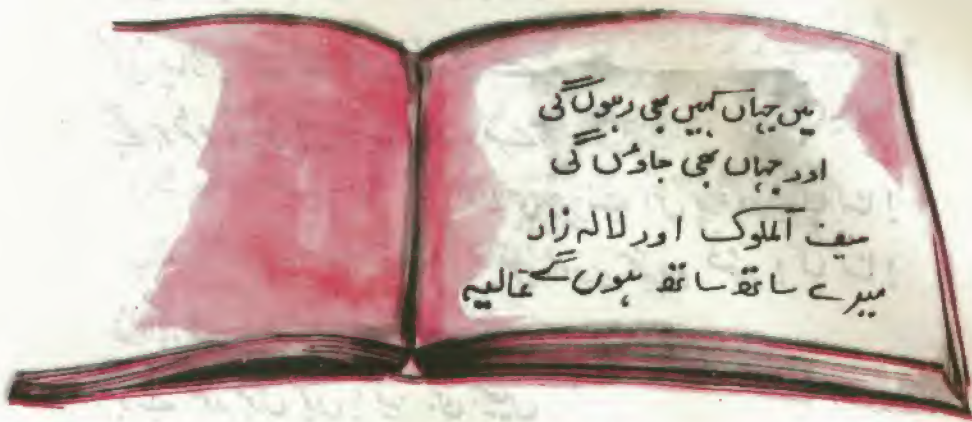 میں جہاں کہیں بھی رہوں گی
اور جہاں بھی جاؤں گی
سیف الملوک اور لالہ زار
میرے ساتھ ساتھ ہوں گے غالیہ